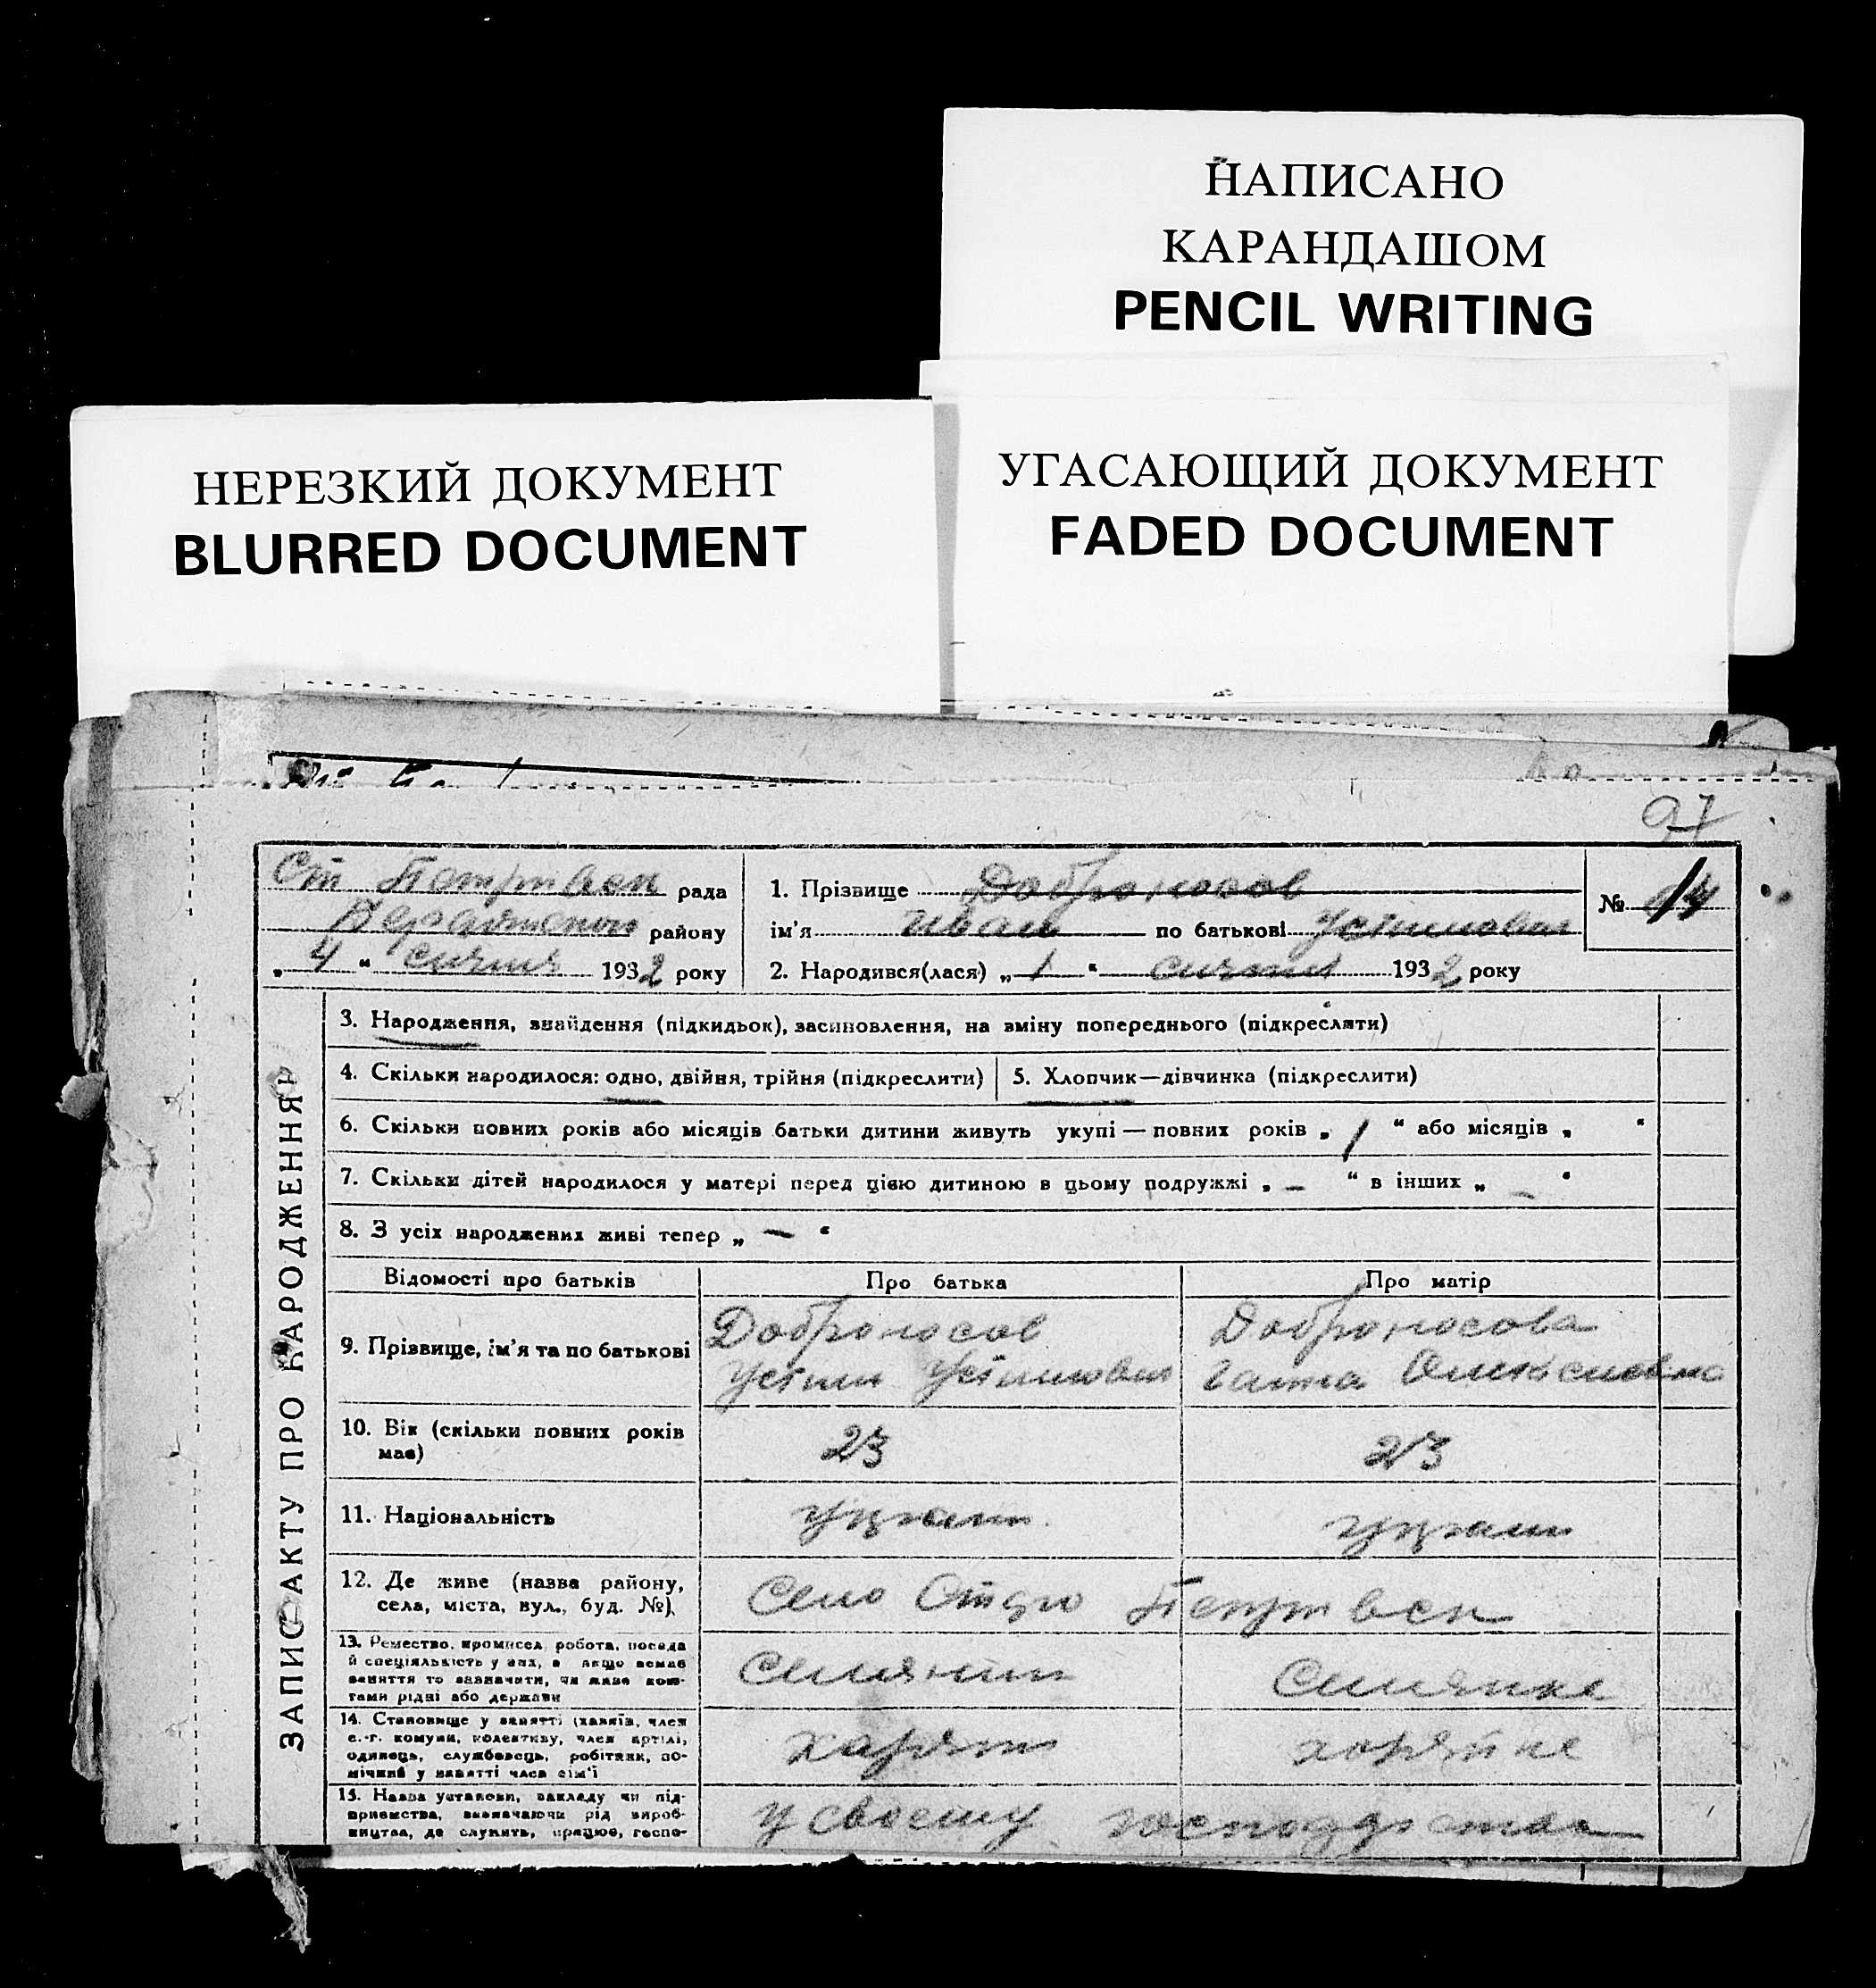 НАПИСАНО
КАРАНДАШОМ
PENCIL WRITING
НЕРЕЗКИЙ ДОКУМЕНТ
BLURRED DOCUMENT
УГАСАЮЩИЙ ДОКУМЕНТ
FADED DOCUMENT
97
Ст рада
району
„ 4 “ січня 1932 року
1. Прізвище Доброносов
ім'я Иван по батькові Устимович
2. Народився(лася) „ 1 “ січня 1932 року
№ 14
ЗАПИС АКТУ ПРО НАРОДЖЕННЯ
3. Народження, знайдення (підкидьок), засиновлення, на зміну попереднього (підкреслити)
4. Скільки народилося: одно, двійня, трійня (підкреслити)
5. Хлопчик—дівчинка (підкреслити)
6. Скільки повних років або місяців батьки дитини живуть укупі — повних років „ 1 “ або місяців „ “
7. Скільки дітей народилося у матері перед цією дитиною в цьому подружжі „ — “ в інших „ — “
8. З усіх народжених живі тепер „ — “
Відомості про батьків Про батька Про матір
9. Прізвище, ім'я та по батькові
Доброносов
Устим Устимович
Доброносова
Ганна Олексиевна
10. Вік (скільки повних років
має)
23
23
11. Національність
україн.
україн
12. Де живе (назва району,
села, міста, вул., буд. №).
Село Старо
13. Ремество, промисел, робота, посада
й спеціяльність у них, а якщо немає
заняття то зазначити, чи живе кош-
тами рідні або держави
Селянин
Селянка
14. Становище у занятті (хазяїн, член
с.-г. комуни, колективу, член артілі,
одинець, службовець, робітник, по-
мічний у занятті член сім'ї
хазяін
хазяйка
15. Назва установи, закладу чи під-
приємства, зазначаючи рід вироб-
ництва, де служить, працює, госпо-
у своему господарстві